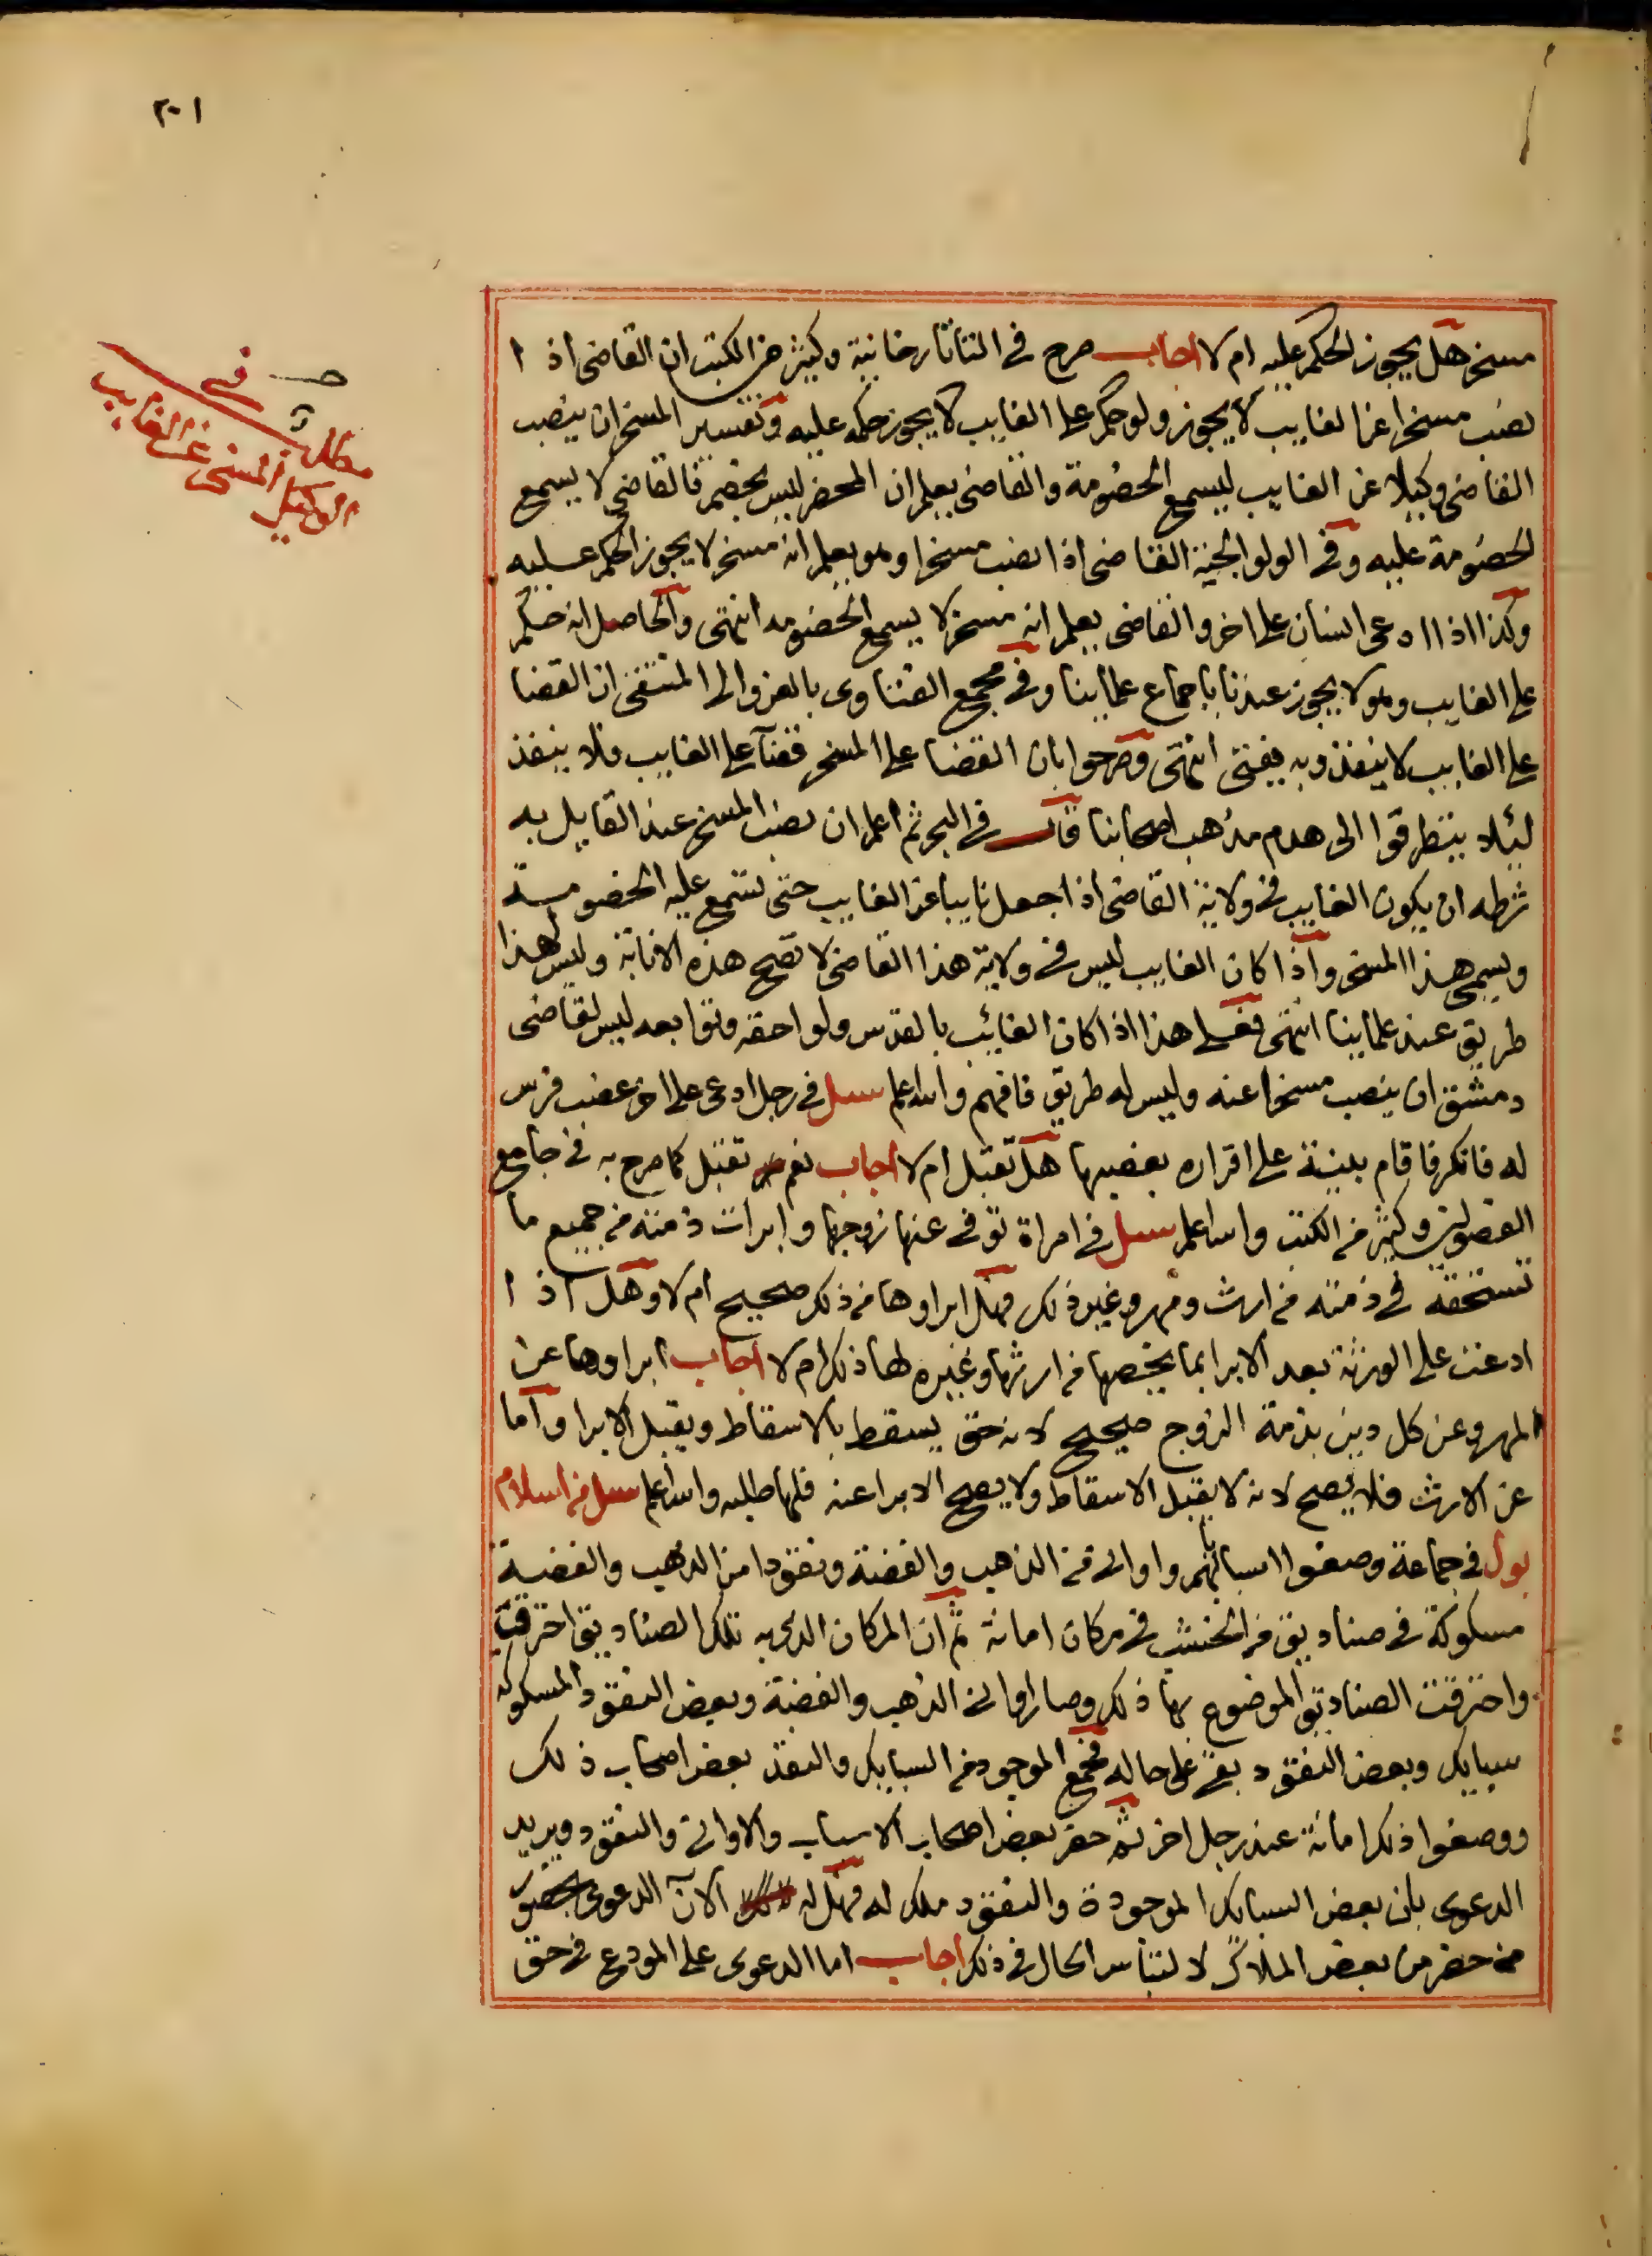 ٢٠١
صـ
ـة
في
مطلب
الوكيل المسخر عن الغايب
مسخر هل يجوز الحكم عليه ام لا اجاب صرح في التاتارخانية وكثير من الكتب ان القاضي اذا
نصب مسخرا عن الغايب لا يجوز ولو حكم على الغايب لا يجوز حكمه عليه وتفسير المسخر ان ينصب
القاضي وكيلا عن الغايب ليسمع الخصومة والقاضي يعلم ان المحضر ليس بخصم فالقاضي لا يسمع
الخصومة عليه وفي الولوالجية القاضي اذا نصب مسخرا وهو يعلم انه مسخر لا يجوز الحكم عليه
وكذا اذا ادعى انسان على اخر والقاضي يعلم انه مسخر لا يسمع الخصومه انتهى والحاصل انه حكم
على الغايب وهو لا يجوز عندنا باجماع علماينا وفي مجمع الفتاوى بالعزو الى المنتقى ان القضا
على الغايب لا ينفذ وبه يفتى انتهى وصرحوا بان القضا على المسخر قضآ على الغايب فلا ينفذ
ليلا يتطرقوا الى هدم مذهب اصحابنا قال في البحر ثم اعلم ان نصب المسخر عند القايل به
شرطه ان يكون الغايب في ولاية القاضي اذا جعل نايبا عن الغايب حتى تسمع عليه الخصومة
ويسمى هذا المسخر واذا كان الغايب ليس في ولاية هذا القاضي لا تصح هذه الانابة وليس لهذا
طريق عند علماينا انتهى فعلى هذا اذا كان الغائب بالقدس ولواحقه وتوابعه ليس لقاضي
دمشق ان ينصب مسخرا عنه وليس له طريق فافهم والله اعلم سىل في رجل ادعى على اخر غصب فرس
له فانكر فاقام بينة على اقراره بغصبها هل تقبل ام لا اجاب نعم تقبل كما صرح به في جامع
الفصولين وكثير من الكتب والله اعلم سىل في امراة توفي عنها زوجها وابرات ذمته من جميع ما
تستحقه في ذمته من ارث ومهر وغير ذلك فهل ابراوها من ذلك صحيح ام لا وهل اذا
ادعت على الورثة بعد الابرا بما يخصها من ارثها وغيره لها ذلك ام لا اجاب ابراوها عن
المهر وعن كل دين بذمة الزوج صحيح لانه حق يسقط بالاسقاط ويقبل الابرا واما
عن الارث فلا يصح لانه لا يقبل الاسقاط ولا يصح الابرا عنه فلها طلبه والله اعلم سىل من اسلام
بول في جماعة وضعوا اسبابهم واواني من الذهب والفضة ونقودا من الذهب والفضة
مسكوكة في صناديق من الخشب في مكان امانة ثم ان المكان الذي به تلك الصناديق احترقت
واحترقت الصناديق الموضوع بها ذلك وصار اواني الذهب والفضة وبعض النقود المسكوكه
سبايك وبعض النقود بقي على حاله فجمع الموجود من السبايك والنقد بعض اصحاب ذلك
ووضعوا ذلك امانة عند رجل اخر ثم حضر بعض اصحاب الاسباب والاواني والنقود ويريد
الدعوى بان بعض السبائك الموجودة والنقود ملك له فهل له الآن الدعوى بحضور
من حضر من بعض الملاك لالتباس الحال في ذلك اجاب اما الدعوى على المودع في حق